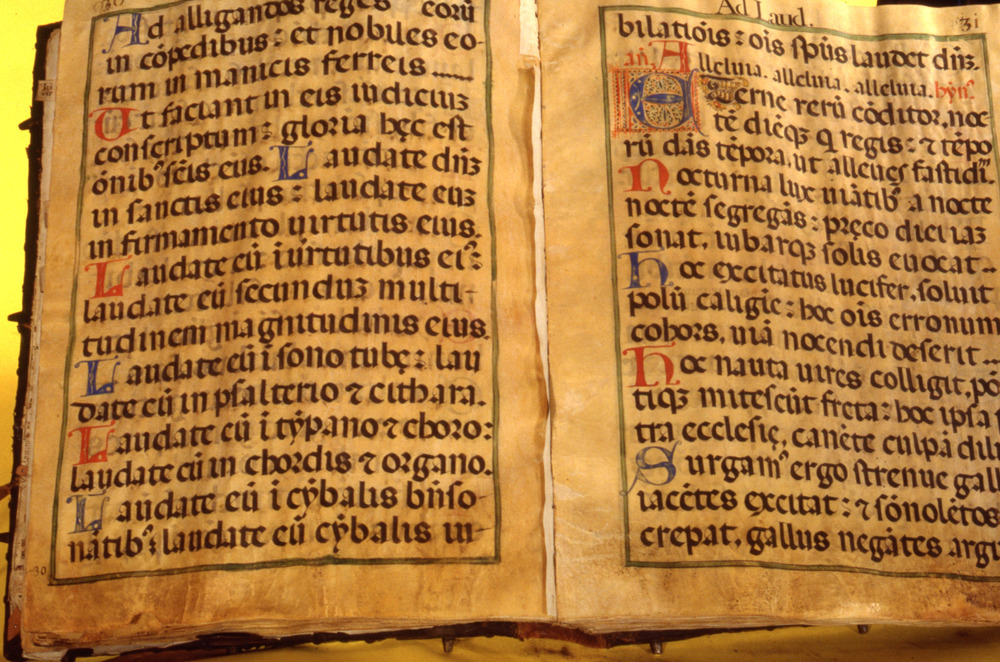 Ad alligandos reges eorū
in cōpedibus: et nobiles eo-
rum in manicis ferreis
Ut faciant in eis iudiciuȝ
conscriptum: gloria hęc est
ōnibꝰ sc̄is eius. Laudate dn̄ȝ
in sanctis eius: laudate euȝ
in firmamento uirtutis eius.
Laudate eū i uirtutibus eiꝰ:
laudate eū secunduȝ multi-
tudinem magnitudinis eius.
Laudate eū ī sono tubę: lau
date eū in psalterio ⁊ cithara.
Laudate eū ī tȳpano ⁊ choro:
laudate eū in chordis ⁊ organo.
Laudate eū ī cȳbalis bn̄so-
nātibꝰ: laudate eū cȳbalis iu-
30
Ad Laud.
31
bilatiōis: ōis sp̄us laudet dn̄ȝ.
añ. Alleluia. alleluia. alleluia. hȳnꝰ.
Eterne rerū cōditor, noc
tē diēqꝫ q̄ regis: ⁊ tēpo
rū dās tēpora, ut alleues fastidiū.
Nocturna lux uiātibꝰ a nocte
noctē segregās: pręco diei iaȝ
sonat, iubarqꝫ solis euocat
Hoc excitatus lucifer, soluit
polū caligīe: hoc ōis erronum
cohors, uiā nocendi deserit
Hoc nauta uires colligit, pō
tiqꝫ mitescūt freta: hoc ipsa
tra ecclesię, canēte culpā dilu
Surgamꝰ ergo strenue gall
iacētes excitat: ⁊ sōnolētos
crepat, gallus negātes argu